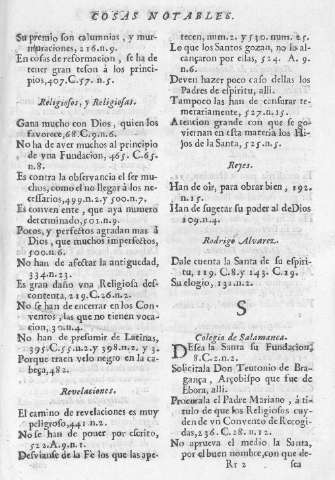 COSAS NOTABLES.
Su premio son calumnias, y mur-
muraciones, 216.n.9.
En cosas de reformacion, se ha de
tener gran teson à los princi-
pios, 407.C.57. n.5.
Religiosos, y Religiosas.
Gana mucho con Dios, quien los
favorece, 68.C.9.n.6.
No ha de aver muchos al principio
de vna Fundacion, 465. C.65.
n.8.
Es contra la observancia el ser mu-
chos, como el no llegar à los ne-
cessarios, 499.n.2. y 500.n.7.
Es conveniente, que aya numero
determinado, 501.n.9.
Pocos, y perfectos agradan mas à
Dios, que muchos imperfectos,
500.n.6.
No han de afectar la antiguedad,
334.n.23.
Es gran daño vna Religiosa des-
contenta, 219.C.26.n.2.
No se han de encerrar en los Con-
ventos, las que no tienen voca-
cion, 30.n.4.
No han de presumir de Latinas,
395.C.55.n.2. y 398.n.2. y 3.
Porque traen velo negro en la ca-
beça, 482.
Revelaciones.
El camino de revelaciones es muy
peligroso, 441.n.2.
No se han de poner por escrito,
522.A.9.n.1.
Desviase de la Fe los que las ape-
tecen, num.2. y 530. num.25.
Lo que los Santos gozan, no lo al-
cançaron por ellas, 524. A. 9.
n.6.
Deven hazer poco caso dellas los
Padres de espiritu, alli.
Tampoco las han de censurar te-
merariamente, 527.n.15.
Atencion grande con que se go-
viernan en esta materia los Hi-
jos de la Santa, 525.n.5.
Reyes.
Han de oìr, para obrar bien, 192.
n.15.
Han de sugetar su poder al de Dios
109.n.4.
Rodrigo Alvarez.
Dale cuenta la Santa de su espiri-
tu, 119. C.8. y 143. C.19.
Su elogio, 131.n.2.
S
Colegio de Salamanca.
Desea la Santa su Fundacion,
8.C.2.n.2.
Solicitala Don Teutonio de Bra-
gança, Arçobispo que fue de
Ebora, alli.
Procurala el Padre Mariano, à ti-
tulo de que los Religiosos cuy-
den de vn Convento de Recogi-
das, 236.C.28.n.12.
No aprueva el medio la Santa,
por el buen nombre, con que de-
Rr 2 sea